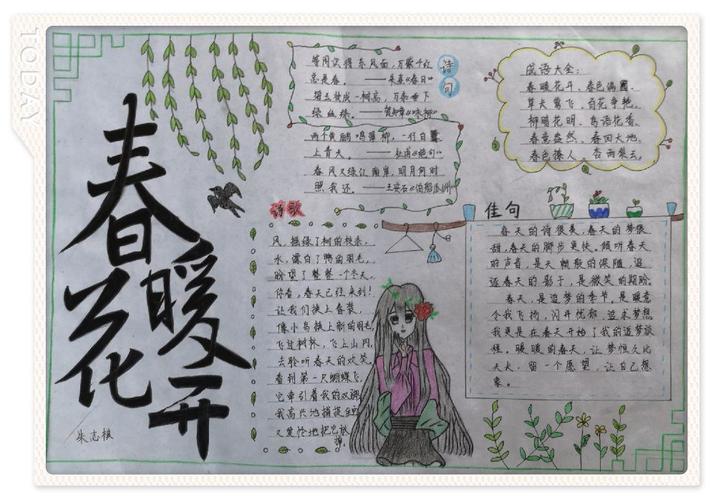 TODAY
春暖
花开
朱志根
诗句
等闲识得东风面，万紫千红
总是春。——朱熹《春日》
碧玉妆成一树高，万条垂下
绿丝绦。——贺知章《咏柳》
两个黄鹂鸣翠柳，一行白鹭
上青天。——杜甫《绝句》
春风又绿江南岸，明月何时
照我还。——王安石《泊船瓜洲》
成语大全：
春暖花开、春色满园、
草长莺飞、百花争艳、
柳暗花明、鸟语花香、
春意盎然、春回大地、
春色撩人、杏雨梨云。
诗歌
风，摇绿了树的枝条，
水，漂白了鸭的羽毛，
盼望了整整一个冬天，
你看，春天已经来到！
让我们换上春装，
像小鸟换上新的羽毛，
飞过树林，飞上山冈，
去聆听春天的欢笑。
看到第一只蝴蝶飞，
它牵引着我的双脚，
我高兴地捕捉
又爱怜地把它放
佳句
春天的诗很美，春天的梦很
甜，春天的脚步更快。倾听春天
的声音，是天
春天的影子，是微笑的
春天，是追梦的季节，是暖意
令我飞扬，闪开忧郁，追求梦想
我更是在春天开始了我的追梦旅
程。暖暖的春天，让梦恒久比
天长，留一个愿望，让自己想
象。